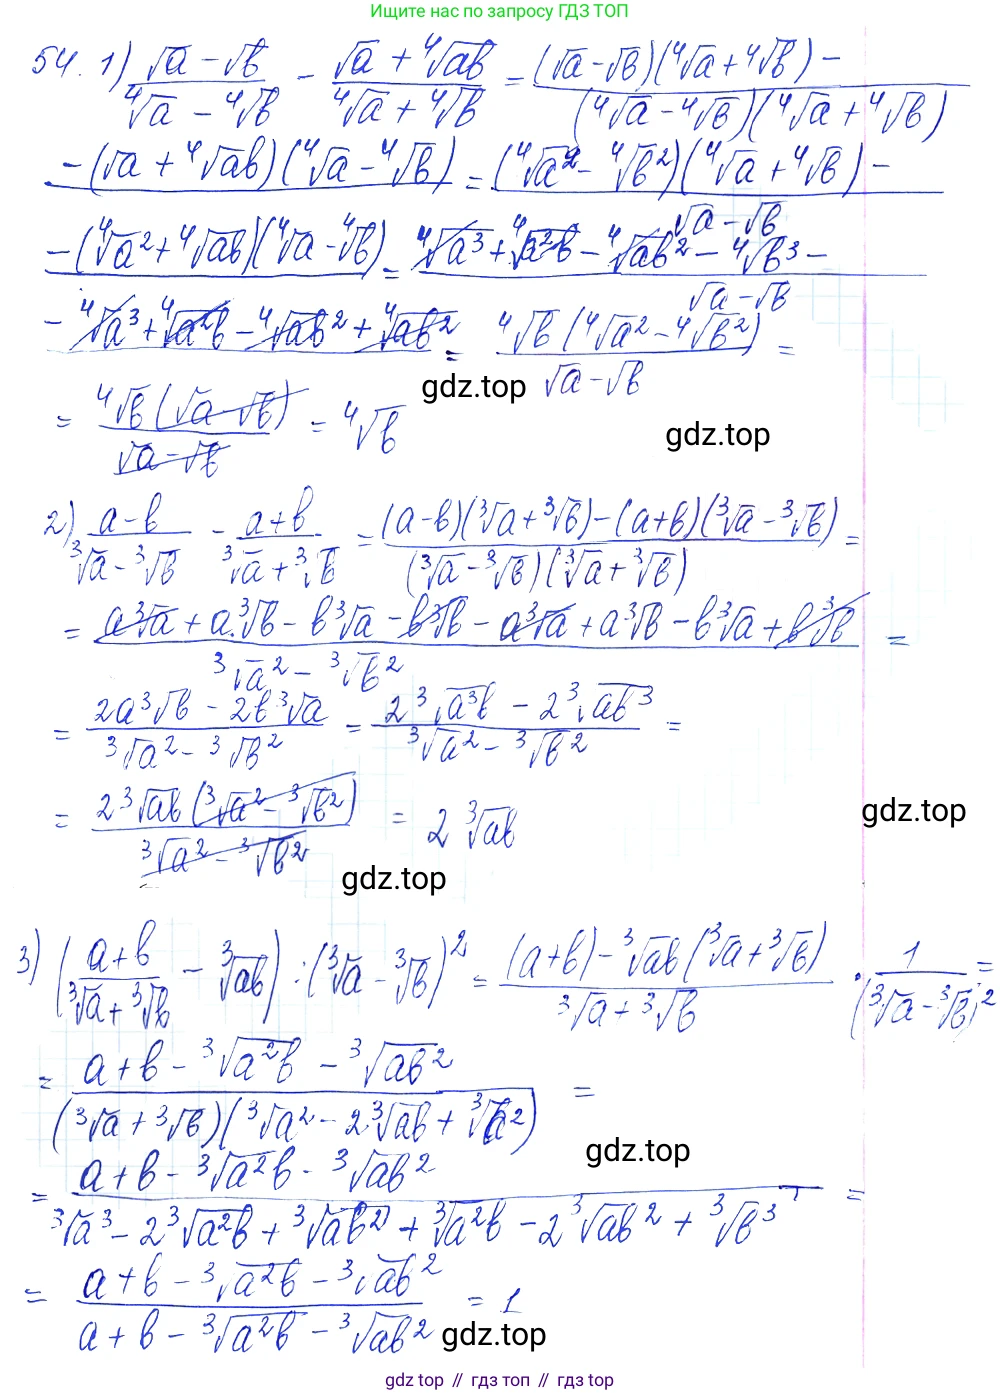 Ищите нас по запросу ГДЗ ТОП
54. 1) (√a − √b)/(⁴√a − ⁴√b) − (√a + ⁴√ab)/(⁴√a + ⁴√b) = ((√a − √b)(⁴√a + ⁴√b) −)/((⁴√a − ⁴√b)(⁴√a + ⁴√b))
(− (√a + ⁴√ab)(⁴√a − ⁴√b)) = ((⁴√a² − ⁴√b²)(⁴√a + ⁴√b) −)/(√a − √b)
(− (⁴√a² + ⁴√ab)(⁴√a − ⁴√b)) = (⁴√a³ + ⁴√a²b − ⁴√ab² − ⁴√b³ −)/(√a − √b)
(− ⁴√a³ + ⁴√a²b − ⁴√ab² + ⁴√ab²) = (⁴√b (⁴√a² − ⁴√b²))/(√a − √b) =
gdz.top
= (⁴√b (√a − √b))/(√a − √b) = ⁴√b
gdz.top
2) (a − b)/(³√a − ³√b) − (a + b)/(³√a + ³√b) = ((a − b)(³√a + ³√b) − (a + b)(³√a − ³√b))/((³√a − ³√b)(³√a + ³√b)) =
= (a³√a + a³√b − b³√a − b³√b − a³√a + a³√b − b³√a + b³√b)/(³√a² − ³√b²) =
= (2a³√b − 2b³√a)/(³√a² − ³√b²) = (2³√a³b − 2³√ab³)/(³√a² − ³√b²) =
= (2³√ab (³√a² − ³√b²))/(³√a² − ³√b²) = 2³√ab
gdz.top
gdz.top
3) ((a + b)/(³√a + ³√b) − ³√ab) : (³√a − ³√b)² = ((a + b) − ³√ab (³√a + ³√b))/(³√a + ³√b) · 1/(³√a − ³√b)² =
= (a + b − ³√a²b − ³√ab²)/((³√a + ³√b)(³√a² − 2³√ab + ³√b²)) =
gdz.top
= (a + b − ³√a²b − ³√ab²)/(³√a³ − 2³√a²b + ³√ab² + ³√a²b − 2³√ab² + ³√b³) =
= (a + b − ³√a²b − ³√ab²)/(a + b − ³√a²b − ³√ab²) = 1
gdz.top
gdz.top // гдз топ // гдз.топ